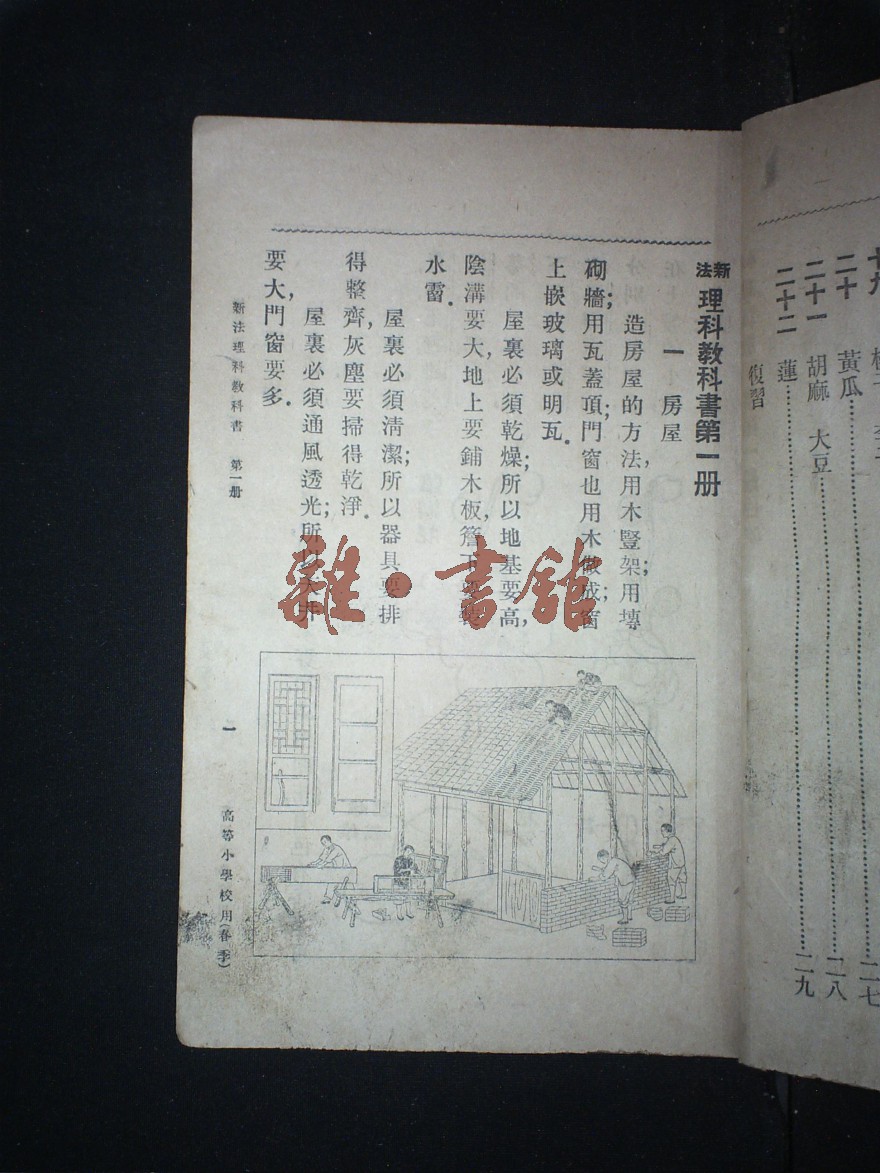 二十 黃瓜……二七
二十一 胡麻 大豆……二八
二十二 蓮……二九
複習
新法理科教科書第一册
一 房屋
造房屋的方法,用木豎架;用塼
砌牆;用瓦蓋頂;門窗也用木做成;窗
上嵌玻璃或明瓦.
屋裏必須乾燥;所以地基要高,
陰溝要大,地上要鋪木板,簷下要
水霤.
屋裏必須清潔;所以器具要排
得整齊,灰塵要掃得乾淨.
屋裏必須通風透光;所以天井
要大,門窗要多.
新法理科教科書 第一册
一
高等小學校用(春季)
雜·書館